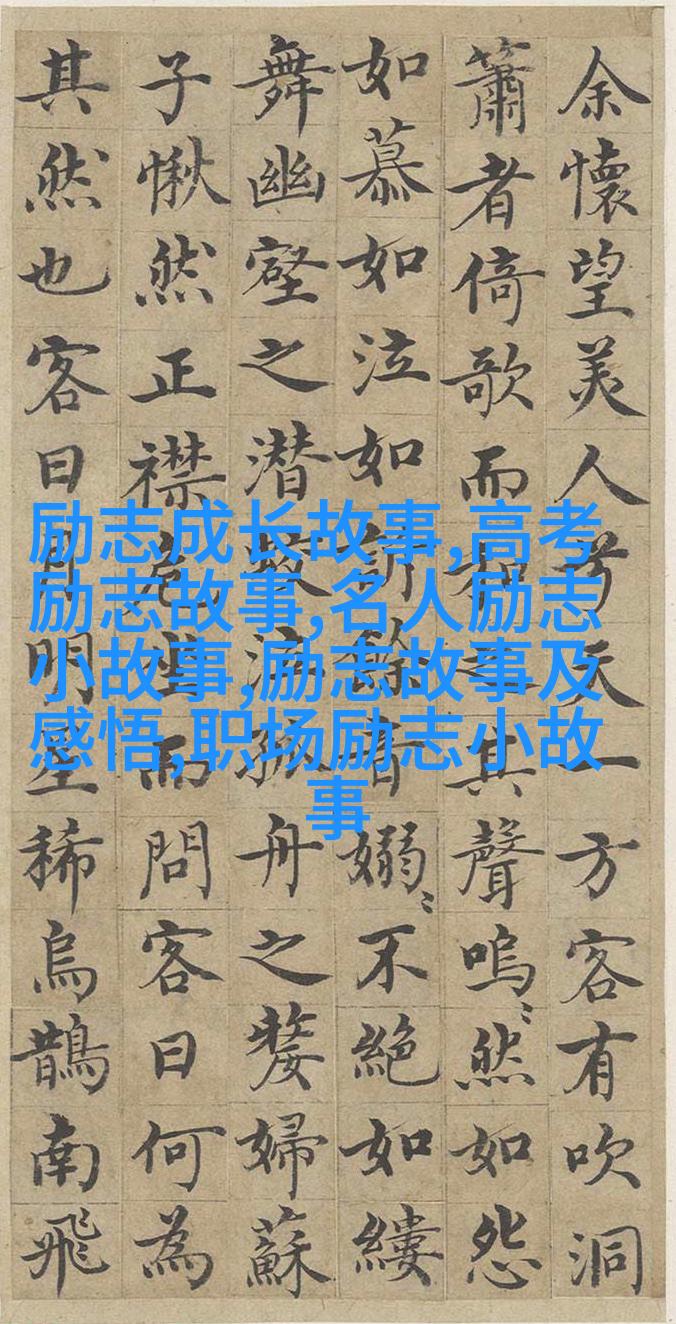 余懷望美人兮天一方客有吹洞
簫者倚歌而和之其聲嗚〻然如怨
如慕如泣如訴餘音嫋〻不絕如縷
舞幽壑之潛蛟泣孤舟之嫠婦蘇
子愀然正襟危坐而問客曰何為
其然也客曰月明星稀烏鵲南飛
励志成长故事,高考
励志故事,名人励志
小故事,励志故事及
感悟,职场励志小故
事